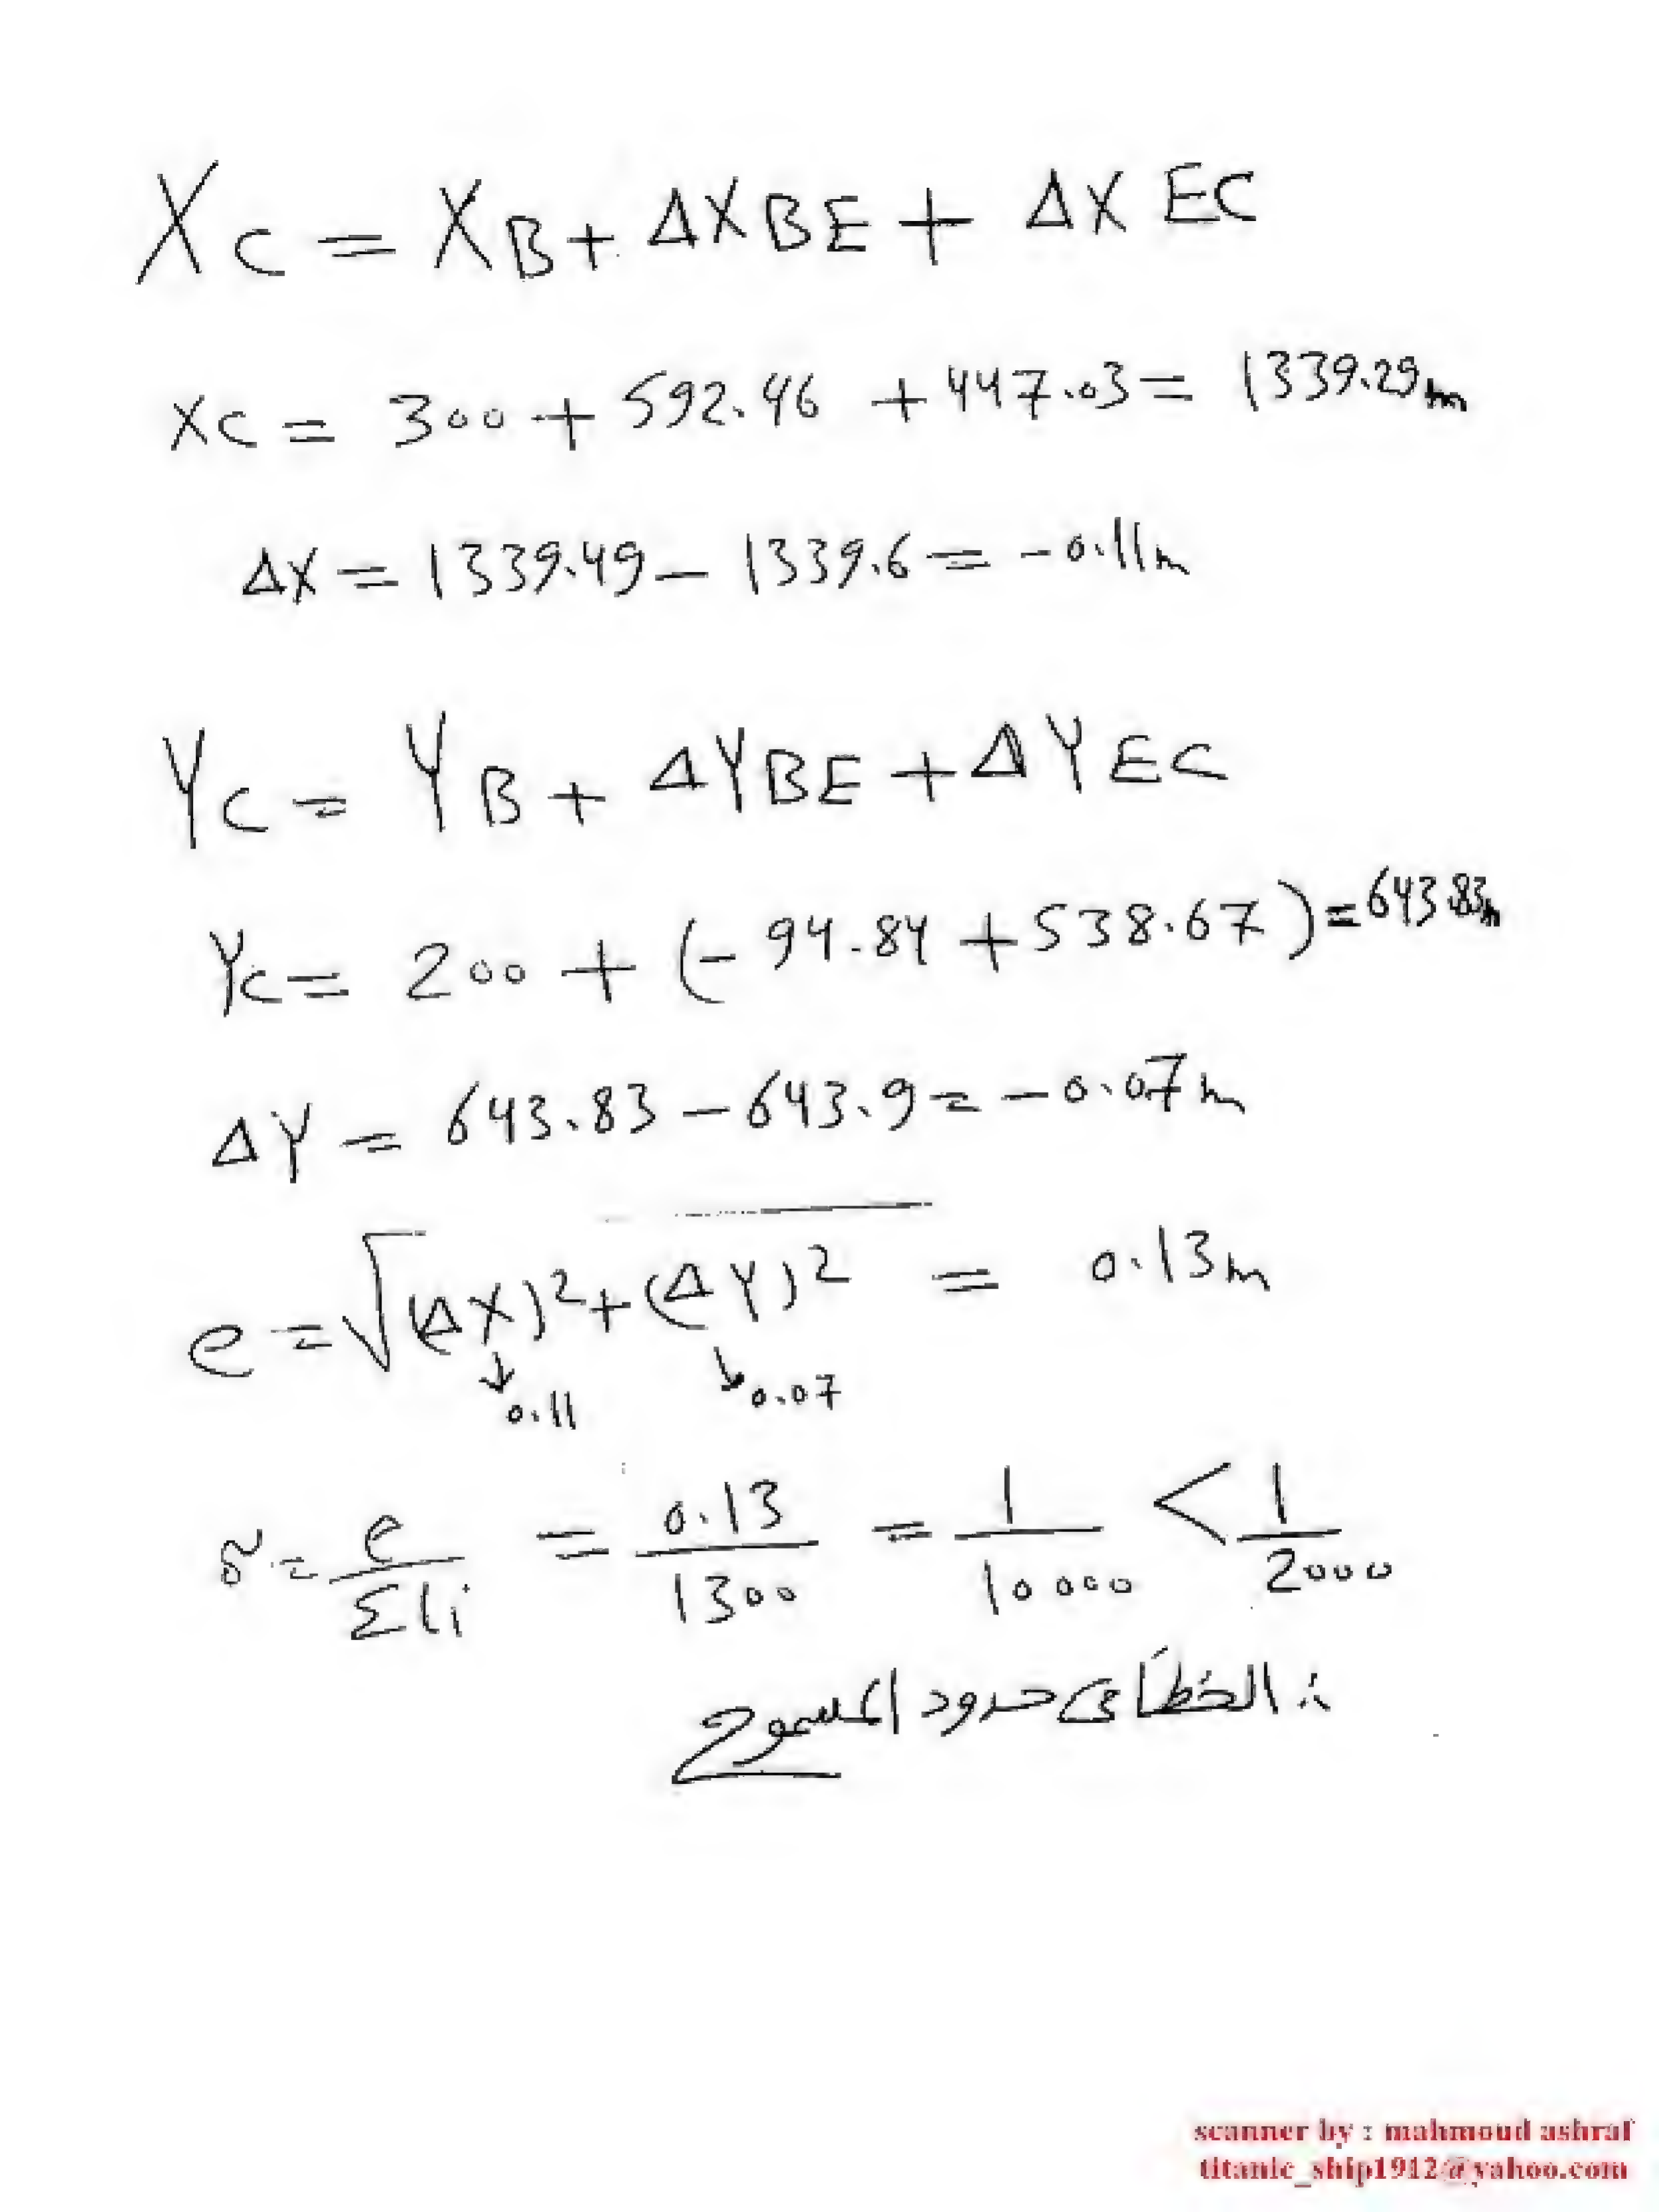 XC = XB + ΔXBE + ΔX EC
XC = 300 + 592.46 + 447.03 = 1339.29m
ΔX = 1339.49 - 1339.6 = - 0.11m
YC = YB + ΔYBE + ΔYEC
YC = 200 + (- 94.84 + 538.67) = 643.83m
ΔY = 643.83 - 643.9 = - 0.07m
e = √(ΔX)² + (ΔY)² = 0.13m
↓ 0.11 ↓ 0.07
δ = e/Σli = 0.13/1300 = 1/10000 < 1/2000
∴ الخطأ فى حدود المسموح
scanner by : mahmoud ashraf
titanic_ship1912@yahoo.com